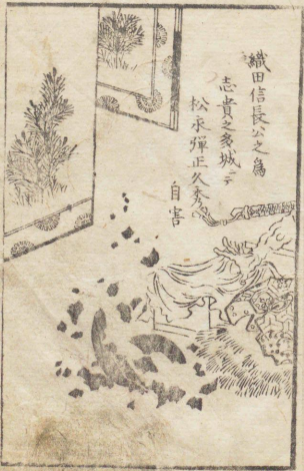 織田信長公之為
志貴之毛城ニ
松永弾正久秀
自害